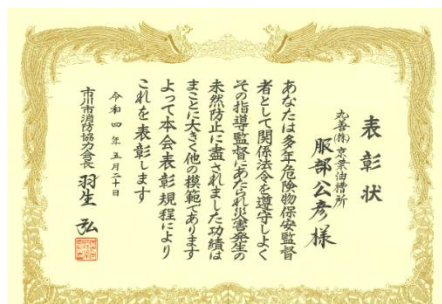 表彰状
丸善㈱京葉油槽所
服部公彦様
あなたは多年危険物保安監督
者として関係法令を遵守しよく
その指導監督にあたられ災害発生の
未然防止に盡されました功績は
まことに大きく他の模範であります
よって本会表彰規程により
これを表彰します
令和四年五月二十日
市川市消防協力会長 羽生弘